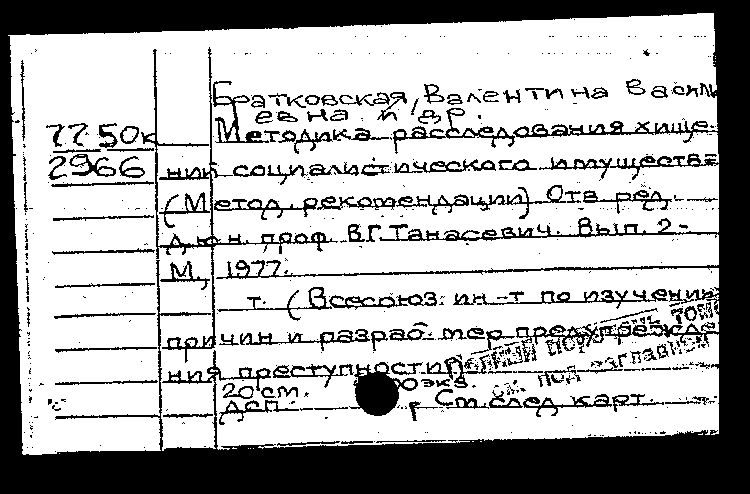 Братковская, Валентина Василь
евна и др.
77.50к Методика расследования хище-
2966 ний социалистического имуществ
(Метод. рекомендации) Отв ред.
д.ю.н. проф. В.Г. Танасевич. Вып. 2-
М., 1977.
т. (Всесоюз. ин-т по изучению
причин и разраб. мер предупрежде
ния преступности)
20см. экз.
дсп. См. след карт.
ПОЛНЫЙ ПЕРЕЧЕНЬ ТОМО
см. под заглавием